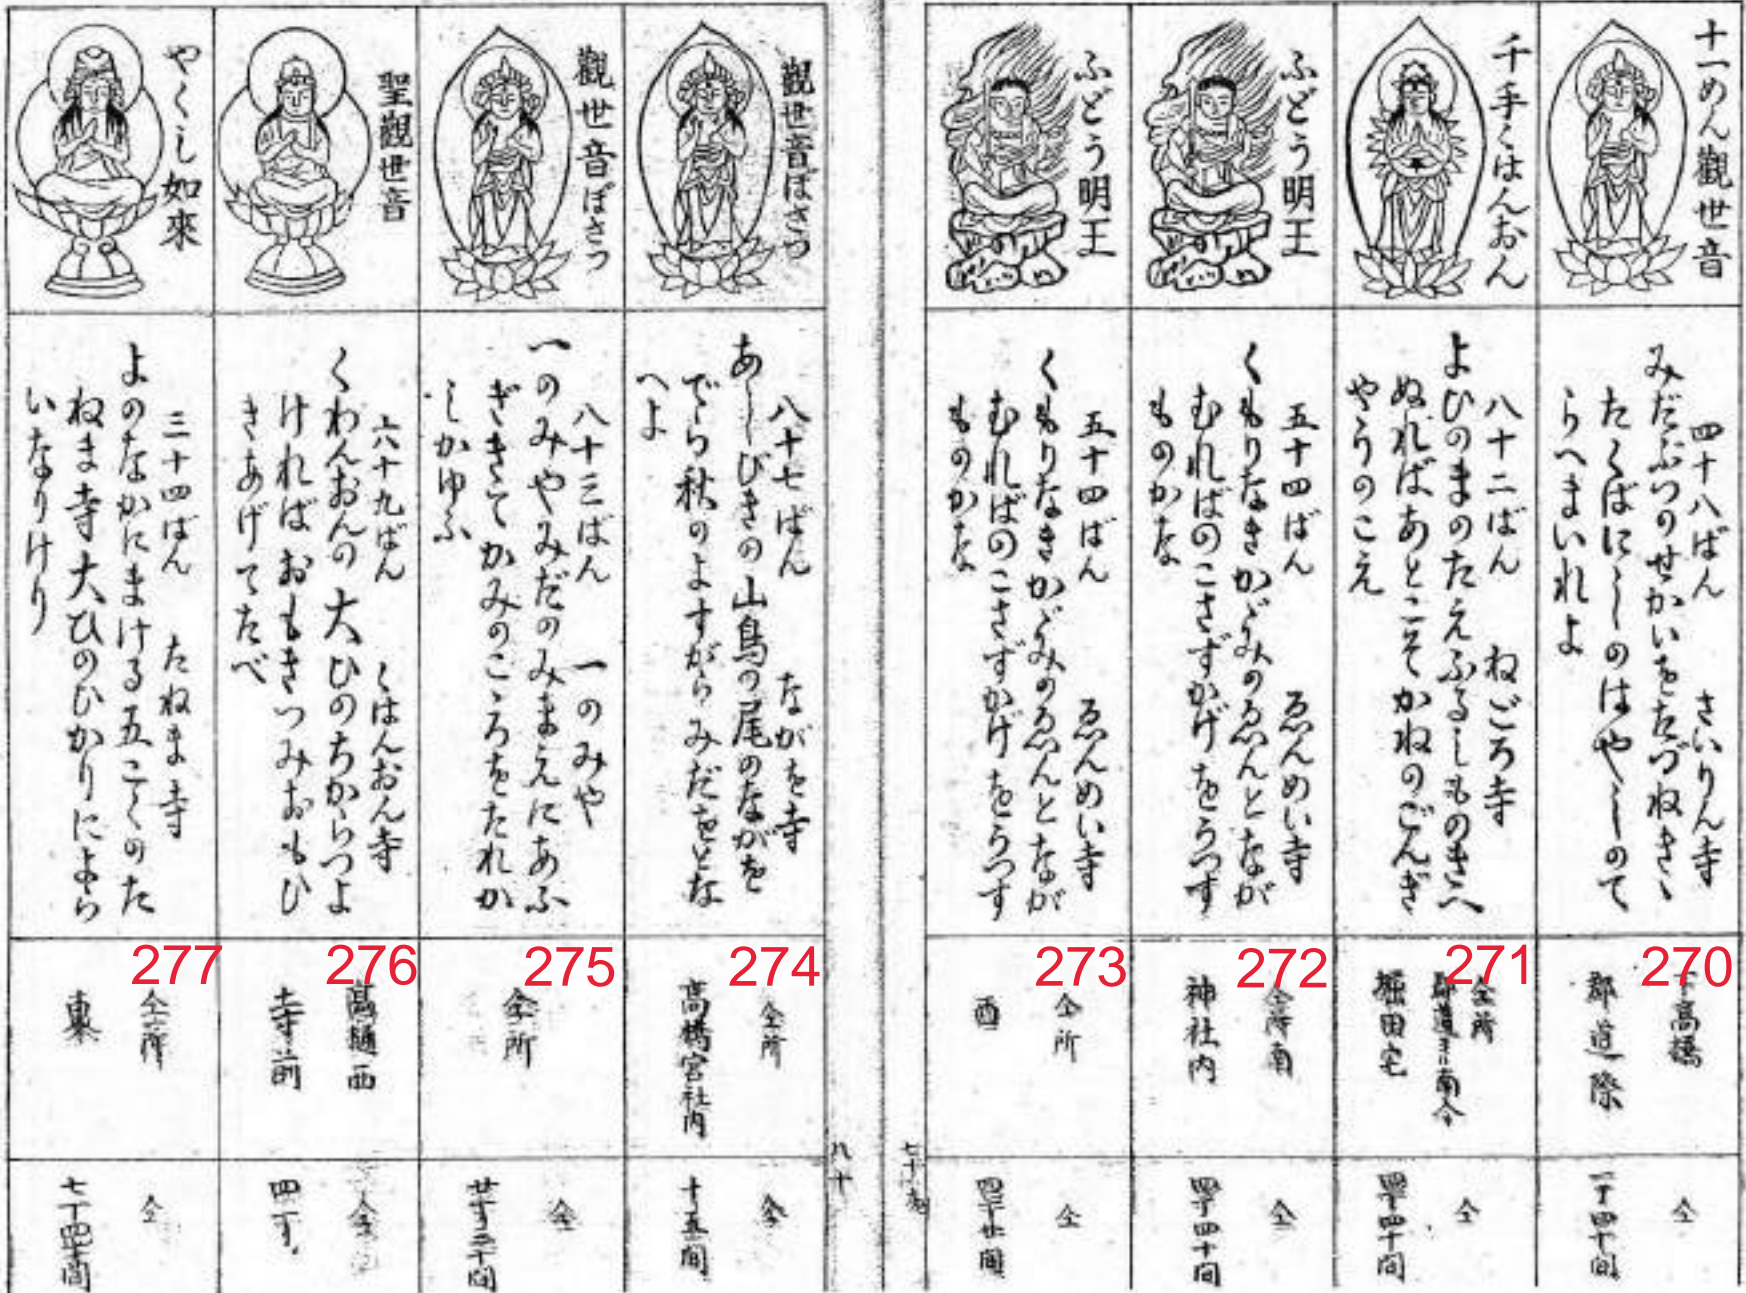 十一めん觀世音
四十八ばん さいりん寺
みだぶつのせかいをたづねきゝ
たくばにしのはやしのて
らへまいれよ
270
下高橋
郡道際
仝
一丁四十間
千手くはんおん
八十二ばん ねごろ寺
よひのまのたえふるしものきへ
ぬればあとこそかねのごんぎ
やうのこえ
271
仝所
郡道ヨリ南今
堀田宅
仝
四丁四十間
ふどう明王
五十四ばん ゑんめい寺
くもりなきかゞみのゑんとなが
むればのこさずかげをうつす
ものかな
272
仝所南
神社内
仝
四丁四十間
ふどう明王
五十四ばん ゑんめい寺
くもりなきかゞみのゑんとなが
むればのこさずかげをうつす
ものかな
273
仝所
酉
仝
四丁廿間
觀世音ぼさつ
八十七ばん ながを寺
あしびきの山鳥の尾のながを
でら秋のよすがらみだをとな
へよ
274
仝所
高橋宮社内
仝
十五間
八十
觀世音ぼさつ
八十三ばん 一のみや
一のみやみだのみまえにあふ
ぎきてかみのこゝろをたれか
しかゆふ
275
仝所
仝
聖觀世音
六十九ばん くはんおん寺
くわんおんの大ひのちからつよ
ければおもきつみおもひ
きあげてたべ
276
高樋西
寺前
仝
四丁
やくし如來
三十四ばん たねま寺
よのなかにまける五こくのた
ねま寺大ひのひかりによら
いなりけり
277
仝所
東
仝
七丁四十間